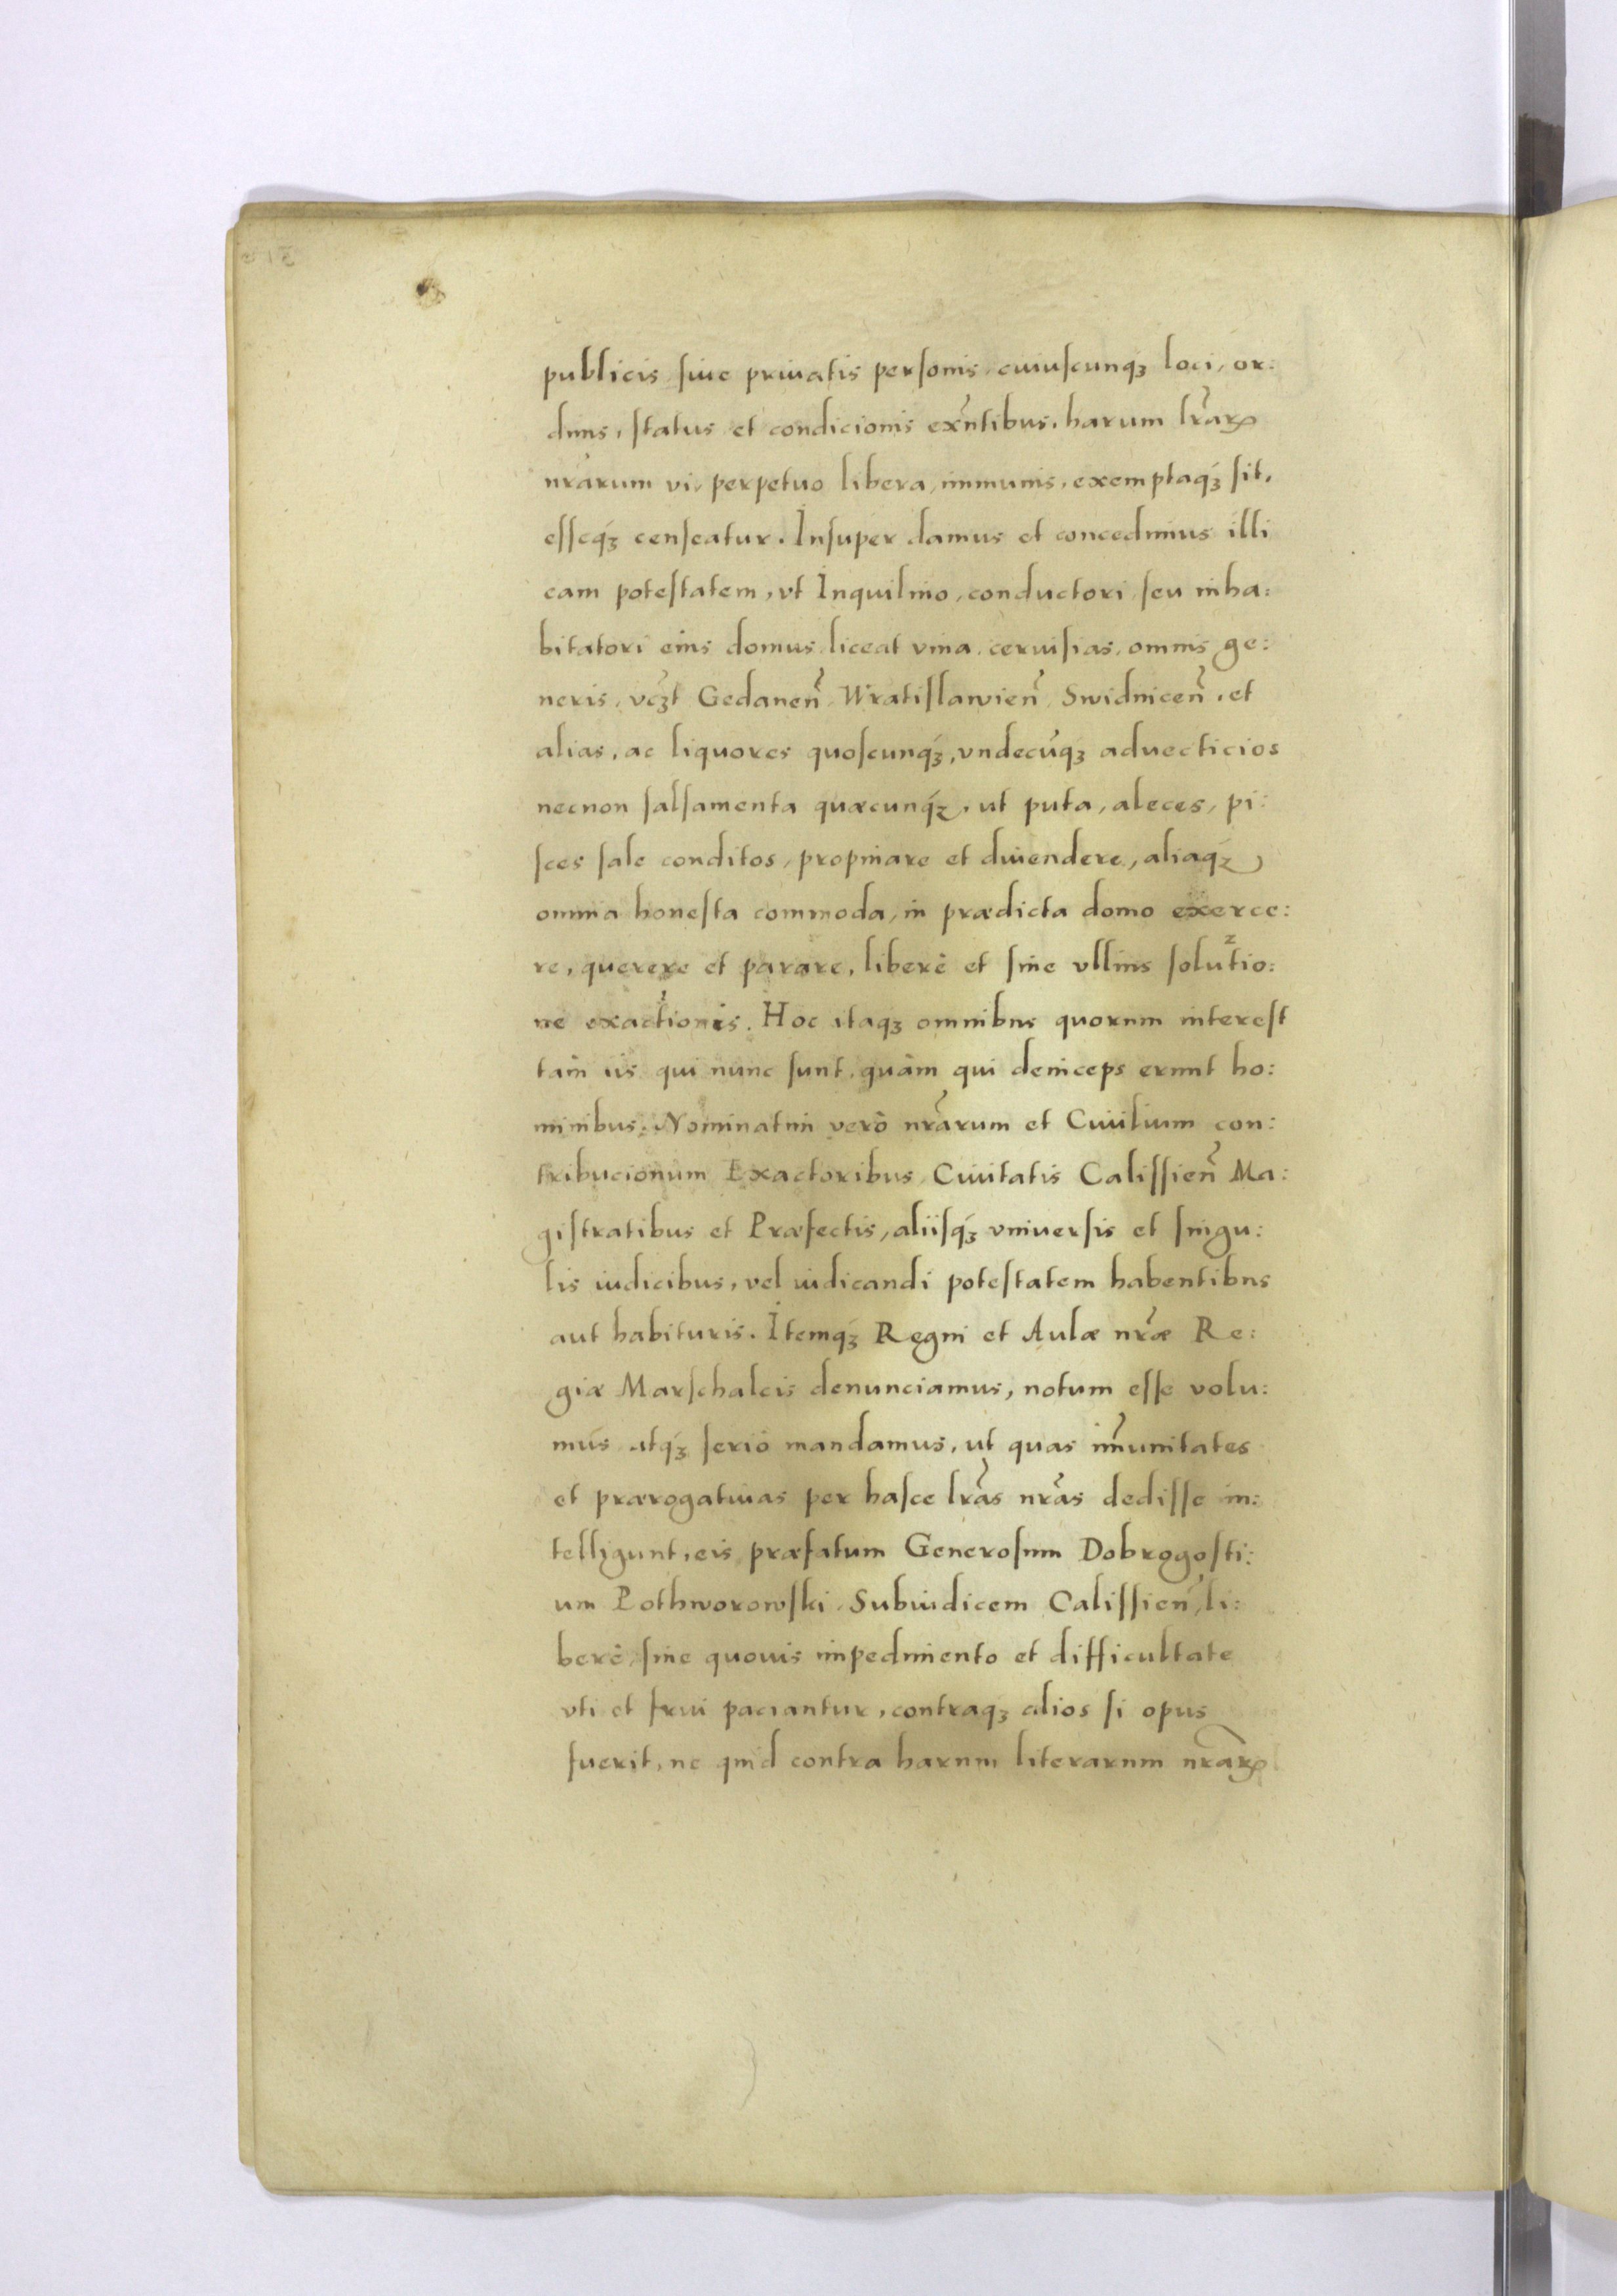 publicis, siue priuatis personis, cuiuscunqȝ loci, or:
dinis, status et condicionis exñtibus, harum lrãrꝝ
nrãrum vi, perpetuo libera, immunis, exemptaqȝ sit,
esseqȝ censeatur. Insuper damus et concedimus illi
eam potestatem, vt Inquilino, conductori, seu inha:
bitatori eius domus, liceat vina, ceruisias, omnis ge:
neris, vcȝt Gedaneñ, Wratislawieñ, Swidniceñ, et
alias, ac liquores quoscunqȝ, vndecūqȝ aduecticios
necnon salsamenta quæcunqȝ, ut puta, aleces, pi:
sces sale conditos, propinare et diuendere, aliaqȝ
omnia honesta commoda, in prædicta domo exerce:
re, querere et parare, liberè et sine vllius solutio:
ne exactionis. Hoc itaqȝ omnibus quorum interest
tàm iis qui nunc sunt, quàm qui deinceps erunt ho:
minibus. Nominatim verò nrãrum et Ciuilium con:
tribucionum Exactoribus, Ciuitatis Calissieñ Ma:
gistratibus et Præfectis, aliisqȝ vniuersis et singu:
lis iudicibus, vel iudicandi potestatem habentibus
aut habituris. Itemqȝ Regni et Aulæ nrẽ Re:
giæ Marschalcis denunciamus, notum esse volu:
mus atqȝ seriò mandamus, ut quas im̃unitates
et prærogatiuas per hasce lrãs nrãs dedisse in:
telligunt, eis præfatum Generosum Dobrogosti:
um Pothworowski, Subiudicem Calissieñ, li:
berè, sine quouis impedimento et difficultate
vti et frui paciantur, contraqȝ alios si opus
fuerit, ne quid contra harum literarum nrãrꝝ